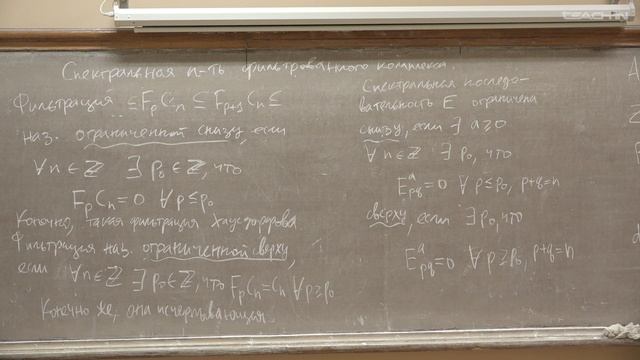 Спектральная п-ть фильтрованного комплекса.
Фильтрация ⊆ F_p C_n ⊆ F_{p+1} C_n ⊆
наз. ограниченной снизу, если
∀ n ∈ ℤ ∃ p₀ ∈ ℤ, что
F_p C_n = 0 ∀ p ≤ p₀
Конечно, такая фильтрация хаусдорфова
Фильтрация наз. ограниченной сверху,
если ∀ n ∈ ℤ ∃ p₀ ∈ ℤ, что F_p C_n = C_n ∀ p ≥ p₀
Конечно же, она исчерпывающая
Спектральная последо-
вательность E ограничена
снизу, если ∃ a ≥ 0
∀ n ∈ ℤ ∃ p₀, что
E^a_{pq} = 0 ∀ p ≤ p₀, p+q=n
сверху, если ∃ p₀, что
E^a_{pq} = 0 ∀ p ≥ p₀, p+q=n
TEACH-IN